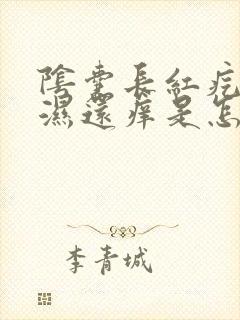 陰囊長紅疙
濕還痒是怎
李青城